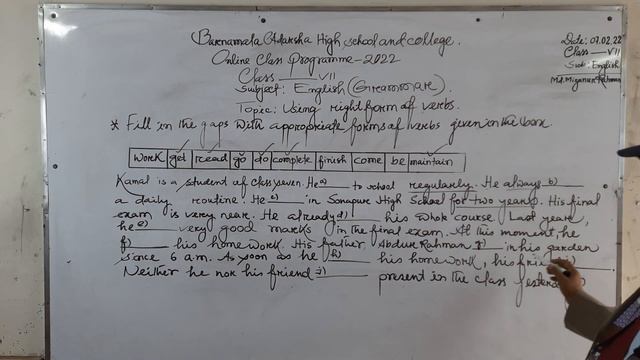 Barnamala Adarsha High school and college.
Online Class Programme-2022
Class — VII
Subject: English (Grammar)
Topic: Using right form of verbs.
Date: 07.02.22
Class — VII
Sub: English
Md. Mizanur Rahman
* Fill in the gaps with appropriate forms of verbs given in the box
work get read go do complete finish come be maintain
Kamal is a student of class seven. He a) to school regularly. He always b)
a daily routine. He c) in Sonapur High School for two years. His final
exam is very near. He already d) his whole course. Last year,
he e) very good marks in the final exam. At this moment, he
f) his homework. His father Abdur Rahman g) in his garden
since 6 a.m. As soon as he h) his homework, his friend i)
Neither he nor his friend j) present in the class yesterday